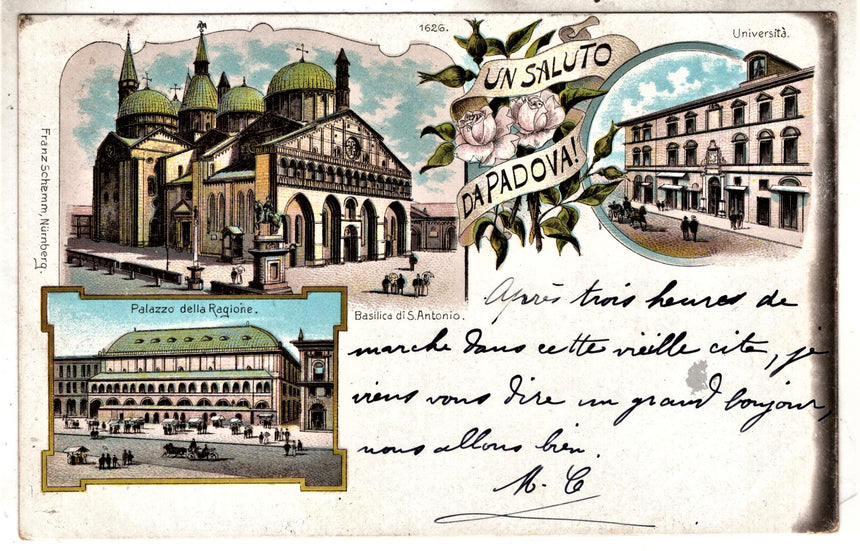 1626.
UN SALUTO
DA PADOVA!
Università.
Franz Schemm, Nürnberg.
Palazzo della Ragione.
Basilica di S. Antonio.
Après trois heures de
marche dans cette vieille cite, je
viens vous dire un grand bonjour,
nous allons bien.
M. C